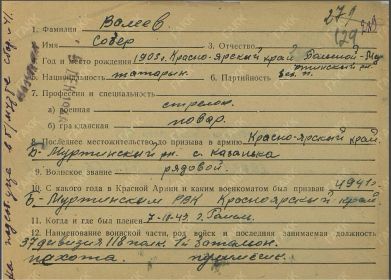 279
(29
1. Фамилия Валеев
Имя Собер 3. Отчество
Год и место рождения 1903г. Красно-Ярский край Болшой-Мур
тинский рн
5. Национальность татарин. 6. Партийность Бес. п.
7. Профессия и специальность
а) военная стрелок.
б) гражданская повар.
8. Последнее местожительство до призыва в армию Красно-Ярский край.
Б-Муртинский рн. с. Казанка
9. Воинское звание рядовой.
10. С какого года в Красной Армии и каким военкоматом был призван 1941г.
Б-Муртинским РВК Красноярский край.
11. Когда и где был пленен 7-10-43г.
12. Наименование воинской части, род войск и последняя занимаемая должность
37 дивизия 118 полк 1й баталион.
пехота.